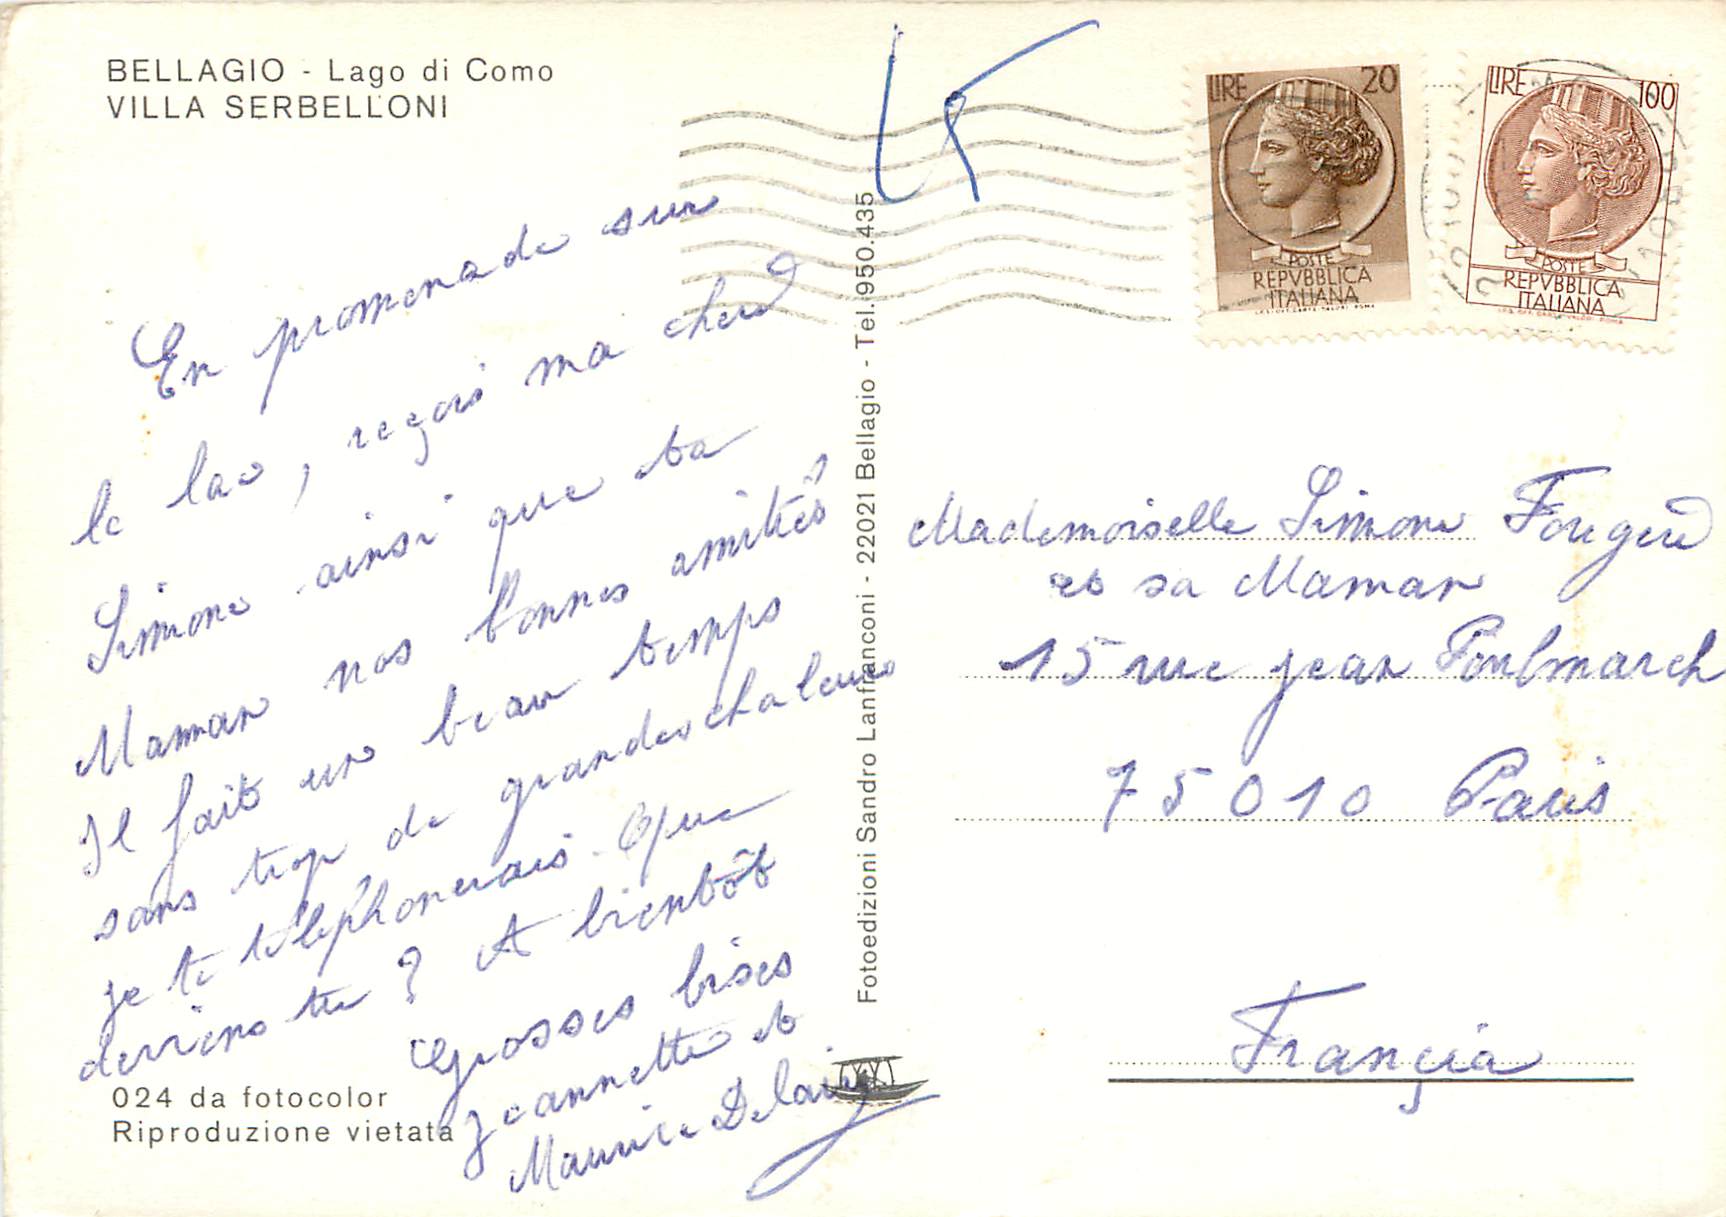 BELLAGIO - Lago di Como
VILLA SERBELLONI
En promenade sur
le lac, reçois ma chère
Simone ainsi que ta
Maman nos bonnes amitiés
Il fait un beau temps
sans trop de grandes chaleurs
je te téléphonerais. Que
deviens tu ? A bientôt
Grosses bises
Jeannette et
Maurice
024 da fotocolor
Riproduzione vietata
Fotoedizioni Sandro Lanfranconi - 22021 Bellagio - Tel. 950.435
LIRE 20
POSTE
REPVBBLICA
ITALIANA
LIRE 100
POSTE
REPVBBLICA
ITALIANA
Mademoiselle Simone Fougere
et sa Maman
15 rue jean Poulmarch
75010 Paris
Françia